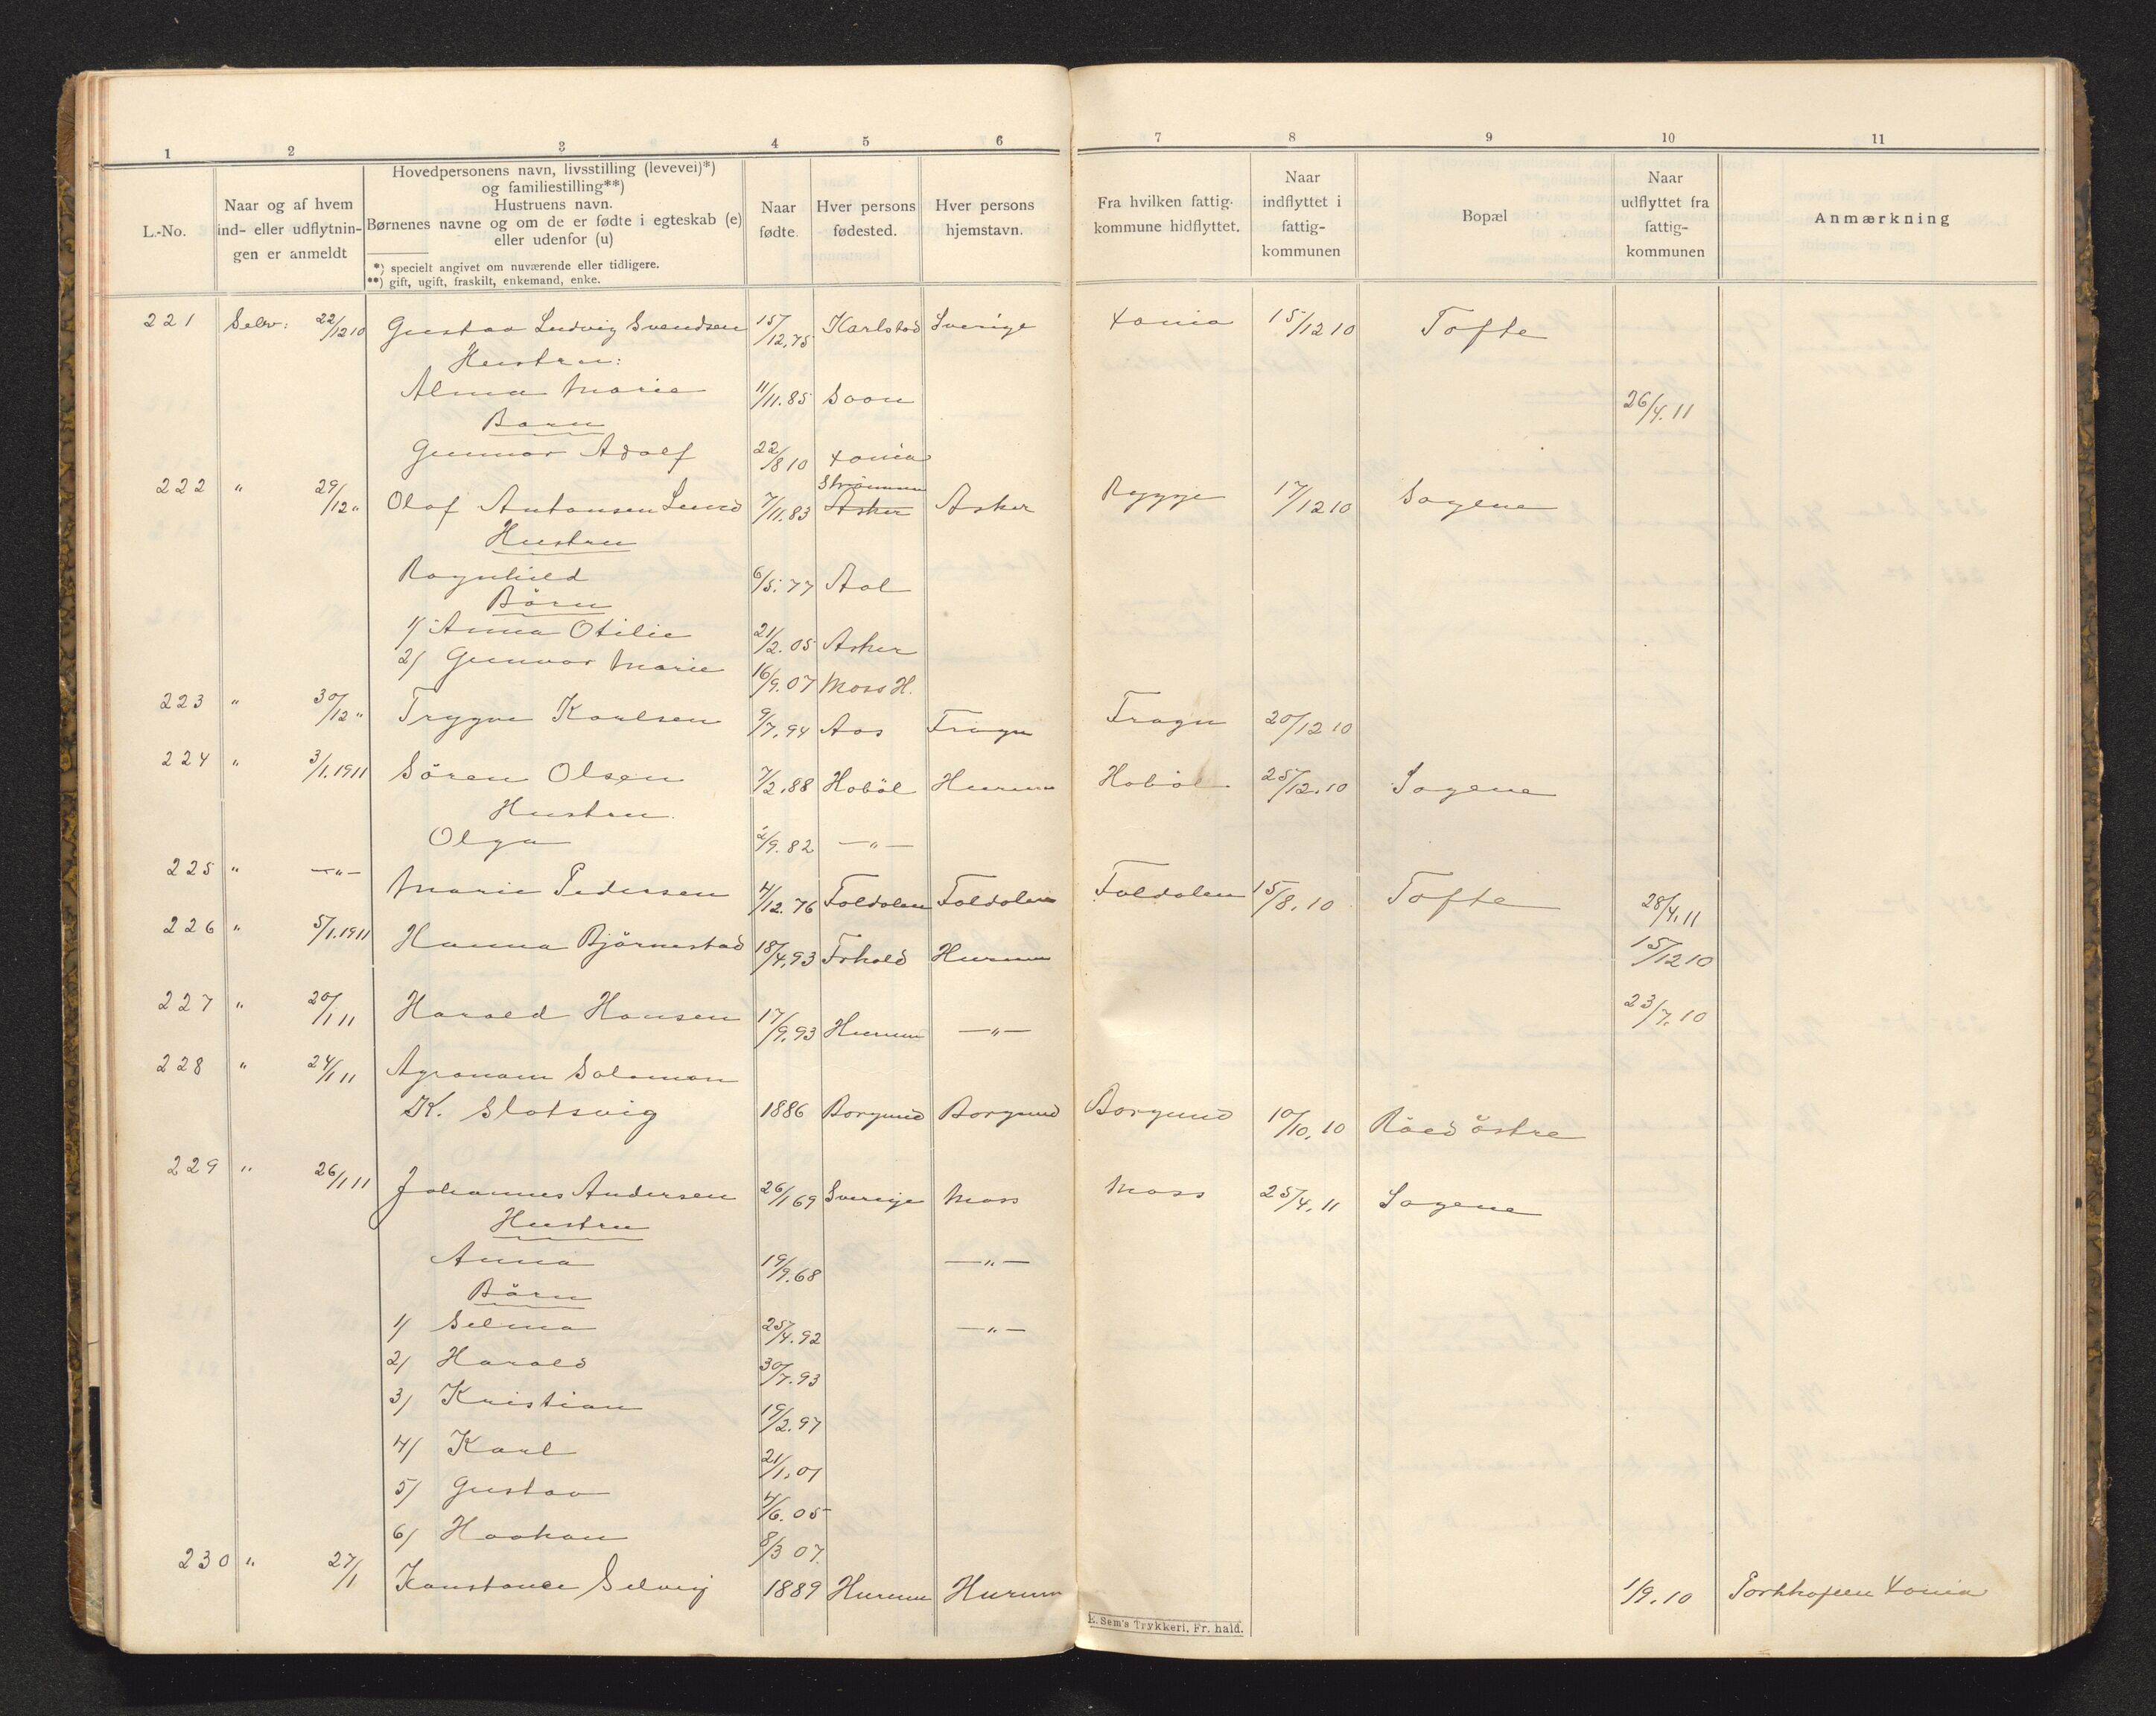 1 2 3 4 5 6 7 8 9 10 11
L.-No.
Naar og af hvem
ind- eller udflytnin-
gen er anmeldt
Hovedpersonens navn, livsstilling (levevei)*)
og familiestilling**)
Hustruens navn.
Børnenes navne og om de er fødte i egteskab (e)
eller udenfor (u)
*) specielt angivet om nuværende eller tidligere.
**) gift, ugift, fraskilt, enkemand, enke.
Naar
fødte.
Hver persons
fødested.
Hver persons
hjemstavn.
Fra hvilken fattig-
kommune hidflyttet.
Naar
indflyttet i
fattig-
kommunen
Bopæl
Naar
udflyttet fra
fattig-
kommunen
Anmærkning
221 Selv: 22/12 10 Gustav Ludvig Svendsen 15/12.75 Karlstad Sverige Xania 15/12 10 Tofte
Hustru:
Alma Marie 11/11.85 Soon 26/4.11
Barn
Gunnar Adolf 22/8 10 Xania
222 " 29/12 " Olaf Antonsen Lund 7/11.83 Strömmen Asker Asker Rygge 17/12 10 Sagene
Hustru
Ragnhild 6/5.77 Aal
Börn
1/ Anna Otilie 21/2.05 Asker
2/ Gunvor Marie 16/9.07 Moss H.
223 " 30/12 " Trygve Karlsen 9/7.94 Aas Frogn Frogn 20/12 10
224 " 3/1.1911 Sören Olsen 7/2.88 Hoböl Hurum Hoböl 25/12.10 Sagene
Hustru
Olga 2/9.82 —"—
225 " —"— Marie Pedersen 4/12.76 Foldalen Foldalen Foldalen 15/8.10 Tofte 28/4.11
226 " 5/1.1911 Hanna Björnestad 18/4.93 Frhald Hurum 15/12 10
227 " 20/1 11 Harald Hansen 17/9.93 Hurum —"— 23/7.10
228 " 24/1 11 Agronom Salomon
K. Slotsvig 1886 Borgund Borgund Borgund 10/10.10 Röed östre
229 " 26/1 11 Johannes Andersen 26/1 69 Sverige Moss Moss 25/4.11 Sagene
Hustru
Anna 19/9.68 —"—
Börn
1/ Selma 25/4.92 —"—
2/ Harald 30/7.93
3/ Kristian 19/2.97
4/ Karl 21/1.01
5/ Gustav 4/6.05
6/ Haakon 8/3 07.
230 " 27/1 Konstance Selvig 1889 Hurum Hurum 1/9.10 Xania
E. Sem's Trykkeri, Fr.hald.